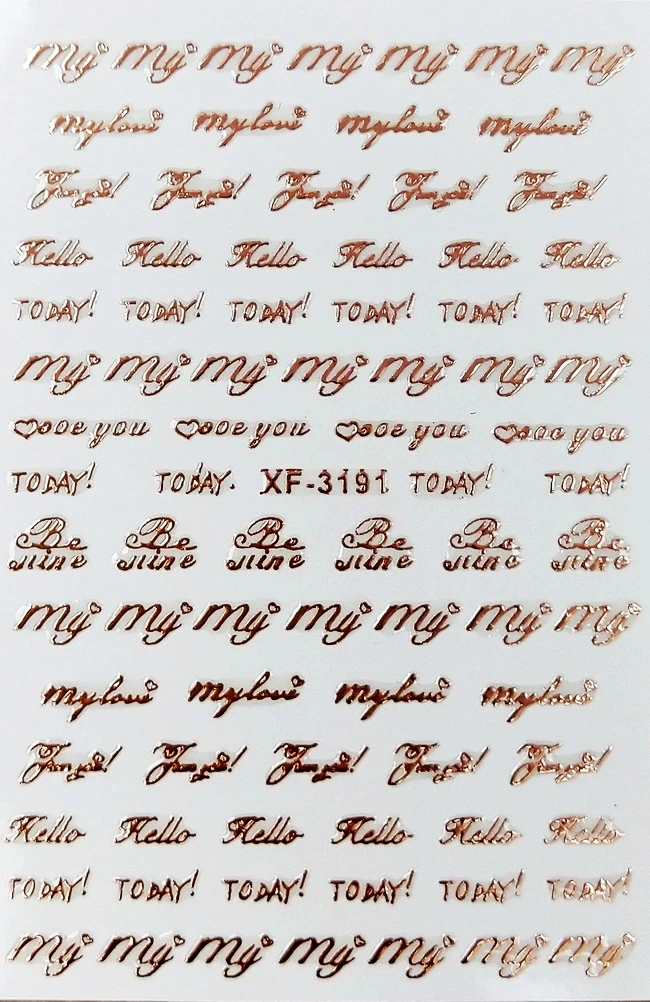 My My My My My My My
My love My love My love My love
Hello Hello Hello Hello Hello Hello
TODAY! TODAY! TODAY! TODAY! TODAY! TODAY!
My My My My My My My
you you you you
TODAY! TODAY. XF-3191 TODAY! TODAY!
Be Be Be Be Be Be
mine mine mine mine mine mine
My My My My My My My
My love My love My love My love
Hello Hello Hello Hello Hello Hello
TODAY! TODAY! TODAY! TODAY! TODAY! TODAY!
My My My My My My My